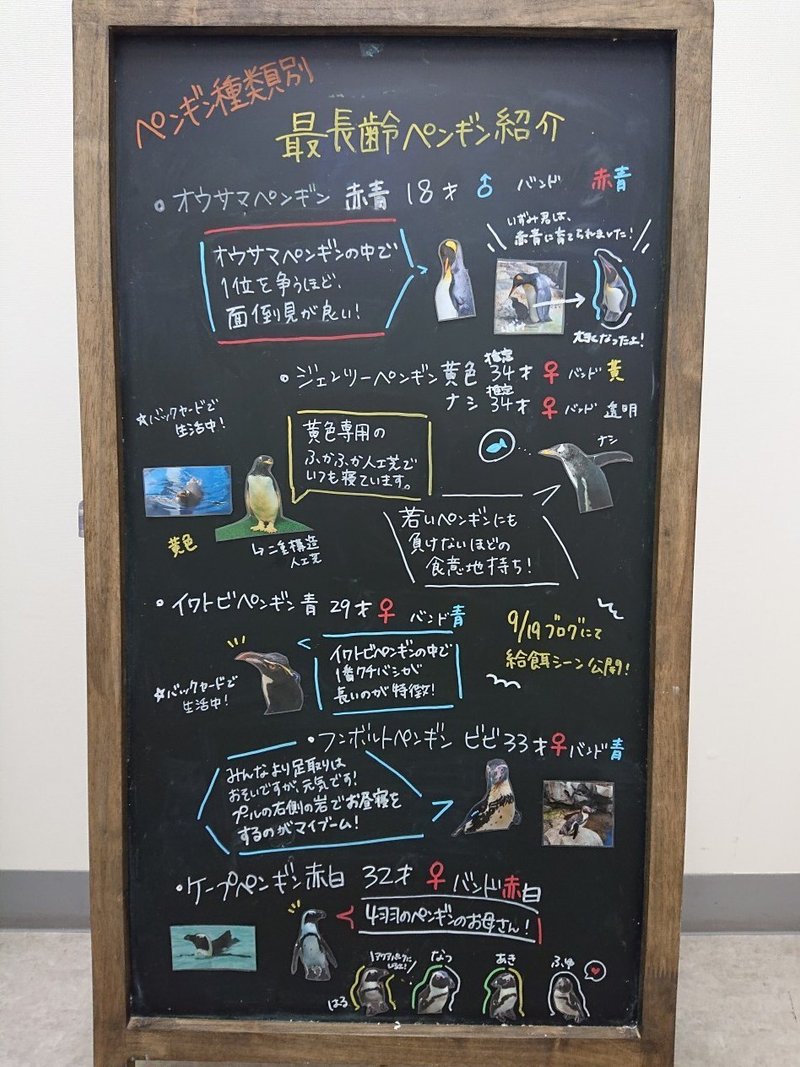 ペンギン種類別
最長齢ペンギン紹介
・オウサマペンギン 赤青 18才 ♂ バンド 赤青
オウサマペンギンの中で
1位を争うほど、
面倒見が良い!
いずみ君は、
赤青に育てられました!
大きくなったよ!
・ジェンツーペンギン 黄色 推定34才 ♀ バンド 黄
ナシ 推定34才 ♀ バンド 透明
☆バックヤードで
生活中!
黄色専用の
ふかふか人工芝で
いつも寝ています。
ナシ
黄色
↳二重構造
人工芝
若いペンギンにも
負けないほどの
食意地持ち!
・イワトビペンギン 青 29才 ♀ バンド青
イワトビペンギンの中で
1番クチバシが
長いのが特徴!
☆バックヤードで
生活中!
9/19ブログにて
給餌シーン公開!
・フンボルトペンギン ビビ 33才 ♀ バンド青
みんなより足取りは
おそいですが、元気です!
プールの右側の岩でお昼寝を
するのがマイブーム!
・ケープペンギン赤白 32才 ♀ バンド赤白
4羽のペンギンのお母さん!
はる
なつ
あき
ふゆ